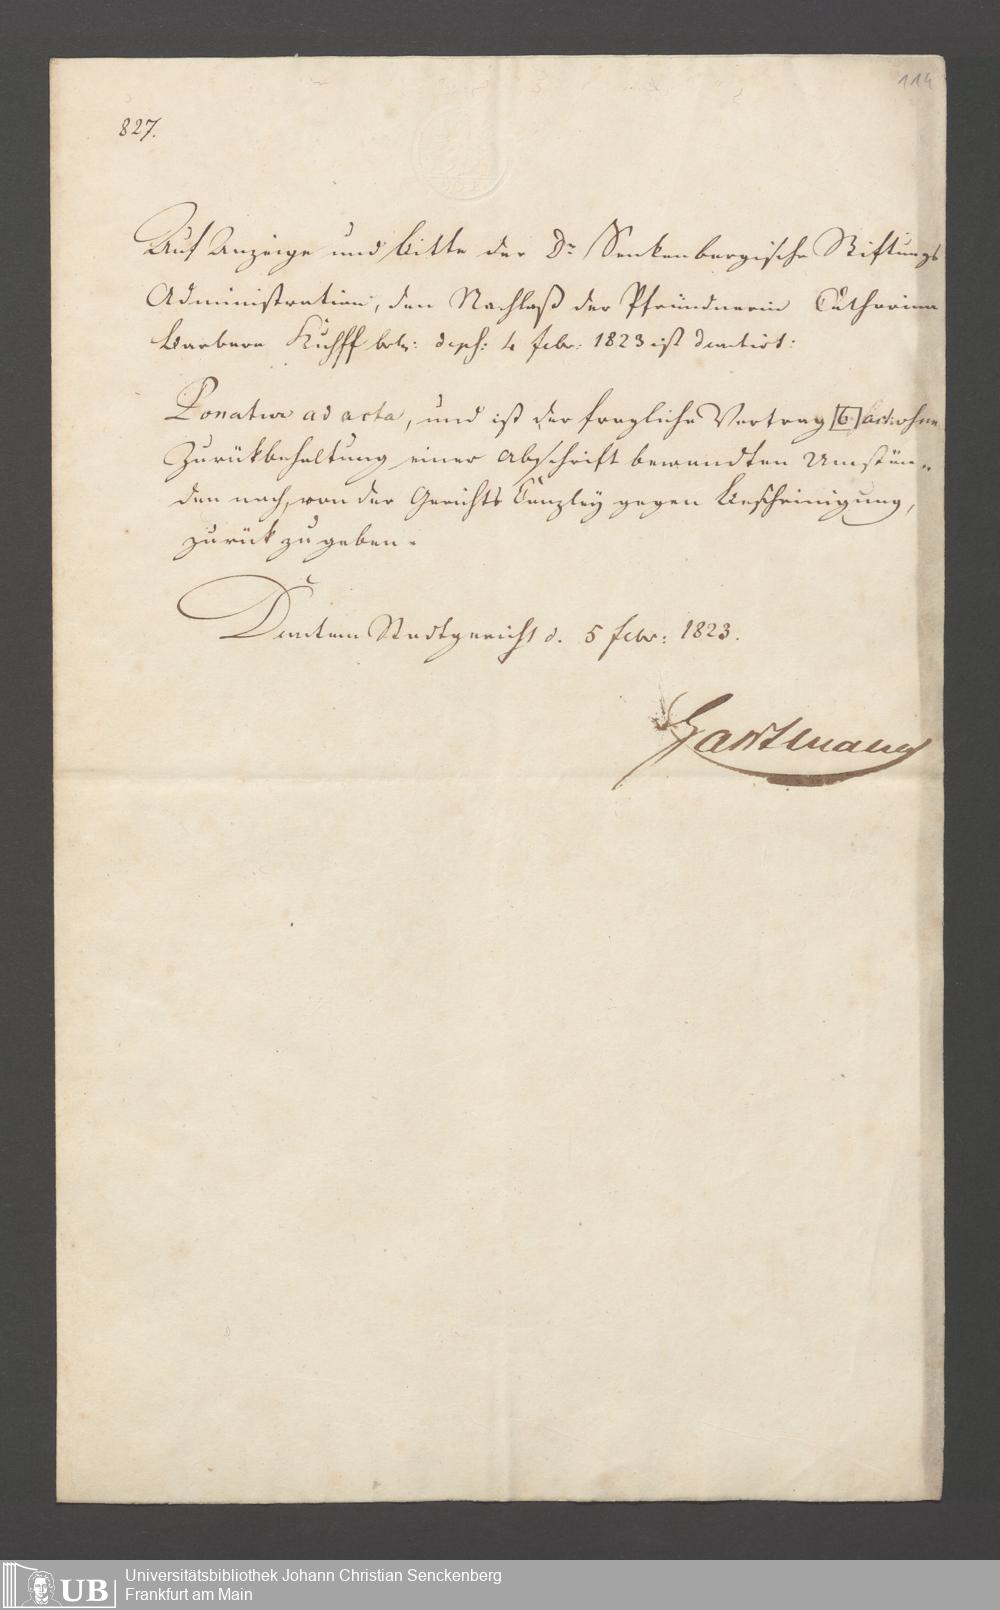 114
827.
Auf Anzeige und bitte der Dr Senkenbergische Stiftungs
Administration, den Nachlaß der Pfründnerin Catharina
Barbara betr: 4 febr: 1823 ist decretirt:
Ponatur ad acta, und ist der fragliche Vertrag [6] act: ohne
Zurükbehaltung einer Abschrift bewandten Umstän„
den nach, von der Gerichts Canzley gegen Bescheinigung,
zurük zu geben.
Decretum Stadtgericht d. 5 febr: 1823.
Hartmann
UB
Universitätsbibliothek Johann Christian Senckenberg
Frankfurt am Main